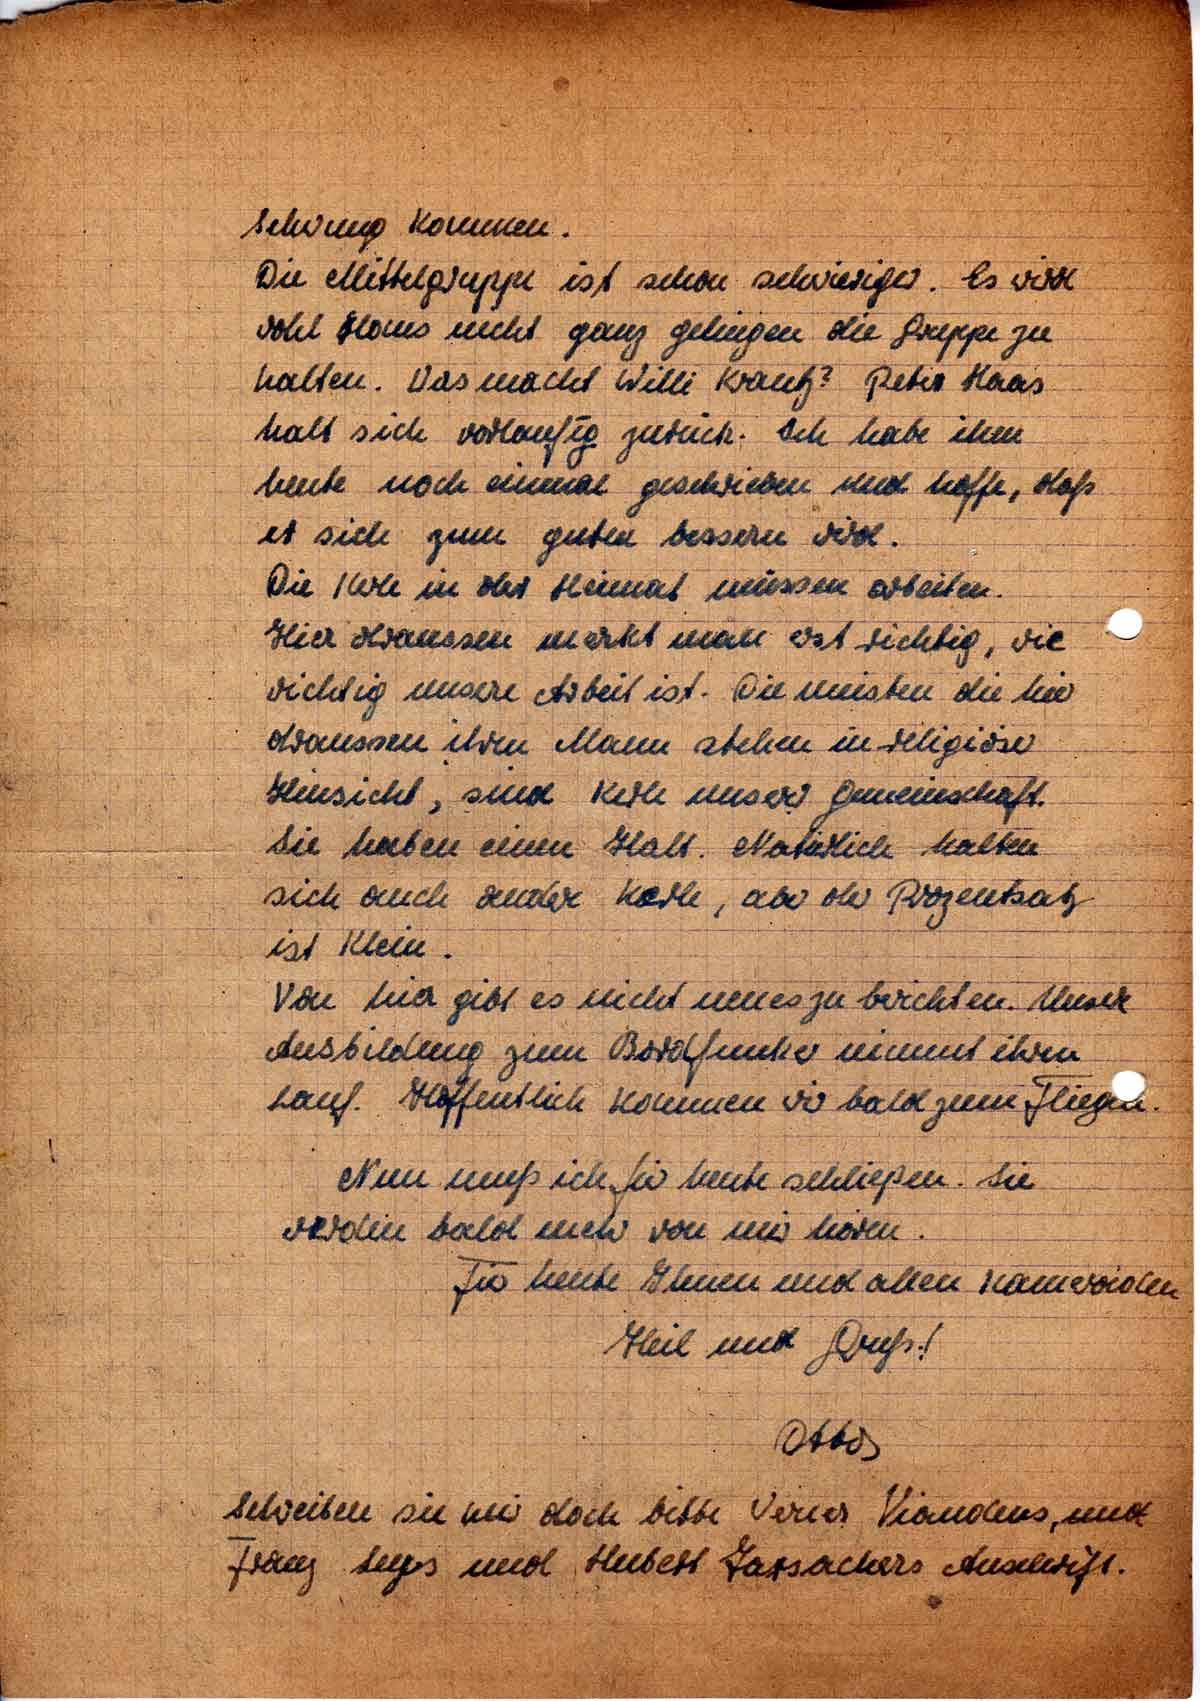 Schwung kommen.
Die Mittelgruppe ist schon schwieriger. Es wird
wohl Hans nicht ganz gelingen die Gruppe zu
halten. Was macht Willi Krantz? Peter Haas
halt sich vorlaufig zurück. Ich habe ihm
heute noch einmal geschrieben und hoffe, daß
er sich zum guten bessern wird.
Die Kerle in der Heimat müssen arbeiten.
Hier draussen merkt man erst richtig, wie
richtig unsere Arbeit ist. Die meisten die hier
draussen ihren Mann stehen in religiöser
Hinsicht, sind Kerle unserer Gemeinschaft.
Sie haben einen Halt. Natürlich halten
sich auch andere Kerle, aber der Prozentsatz
ist klein.
Von hier gibt es nicht neues zu berichten. Unsere
Ausbildung zum Bordfunker nimmt ihren
Lauf. Hoffentlich kommen wir bald zum Fliegen.
Nun muß ich für heute schließen. Sie
werden bald mehr von mir hören.
Für heute Ihnen und allen Kameraden
Heil und Gruß!
Otto
Schreiben sie mir doch bitte Viandens, und
Franz und Hubert Anschrift.